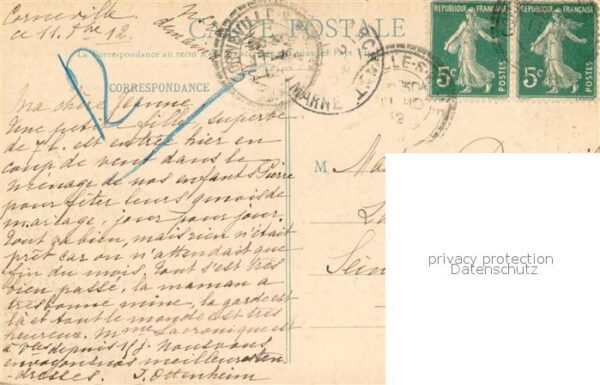 Corneville
ce 11. 12
CARTE POSTALE
La Correspondance au recto
RÉPUBLIQUE FRANÇAISE
5c
POSTES
RÉPUBLIQUE FRANÇAISE
5c
POSTES
MARNE
CORRESPONDANCE
Ma chère Jeanne
Une petite fille, superbe
de 7 L. est entrée hier en
coup de vent dans le
ménage de nos enfants Pierre
pour fêter leurs mois de
mariage, jour pour jour.
Tout va bien, mais rien n'était
prêt car on n'attendait que
fin du mois. Tout s'est très
bien passé, la maman a
très bonne mine, la garde est
là et tout le monde est très
heureux. Mme Lacronique est
à depuis 15 j. Nous vous
envoyons nos meilleures ten-
dresses. J. Ottenheim
M
privacy protection
Datenschutz